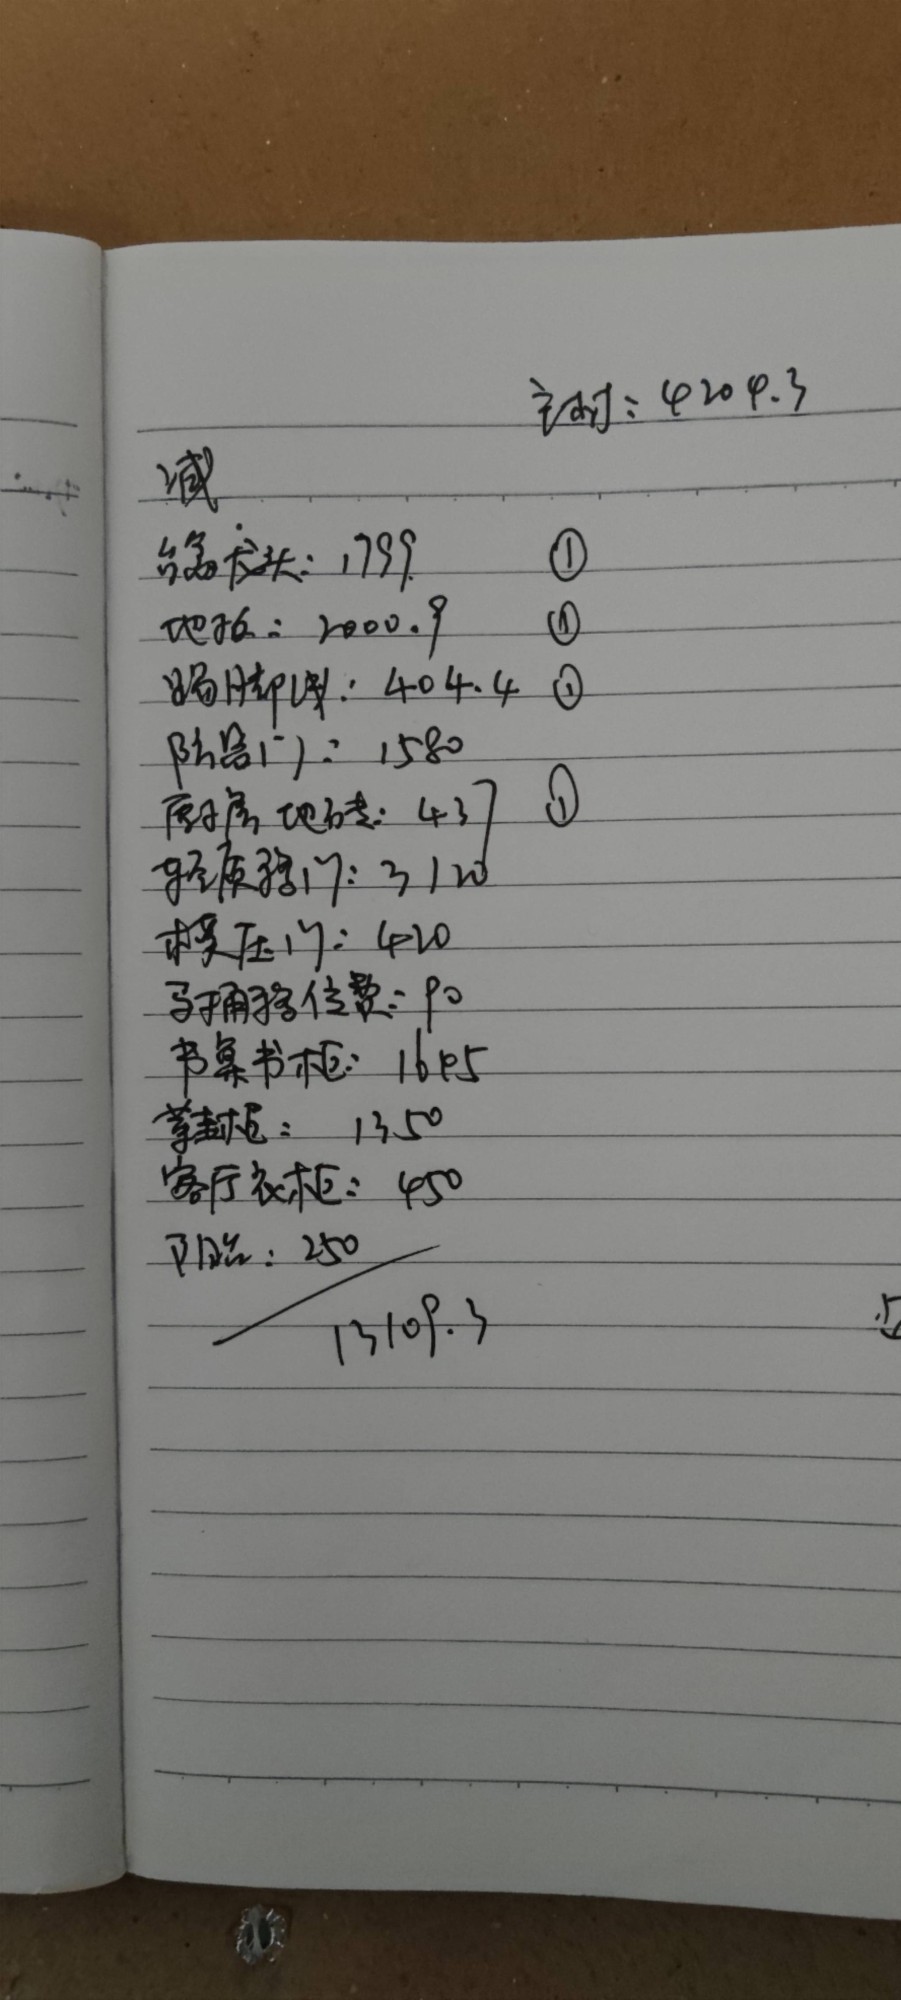 主材: 4204.3
减
台盆龙头: 1799 ①
地板: 2000.9 ①
踢脚线: 404.4 ①
防盗门: 1580
厨房地砖: 437 ①
轻质移门: 3120
模压门: 420
马桶移位费: 90
书桌书柜: 1645
柜: 1350
客厅衣柜: 450
阳台: 250
13109.3